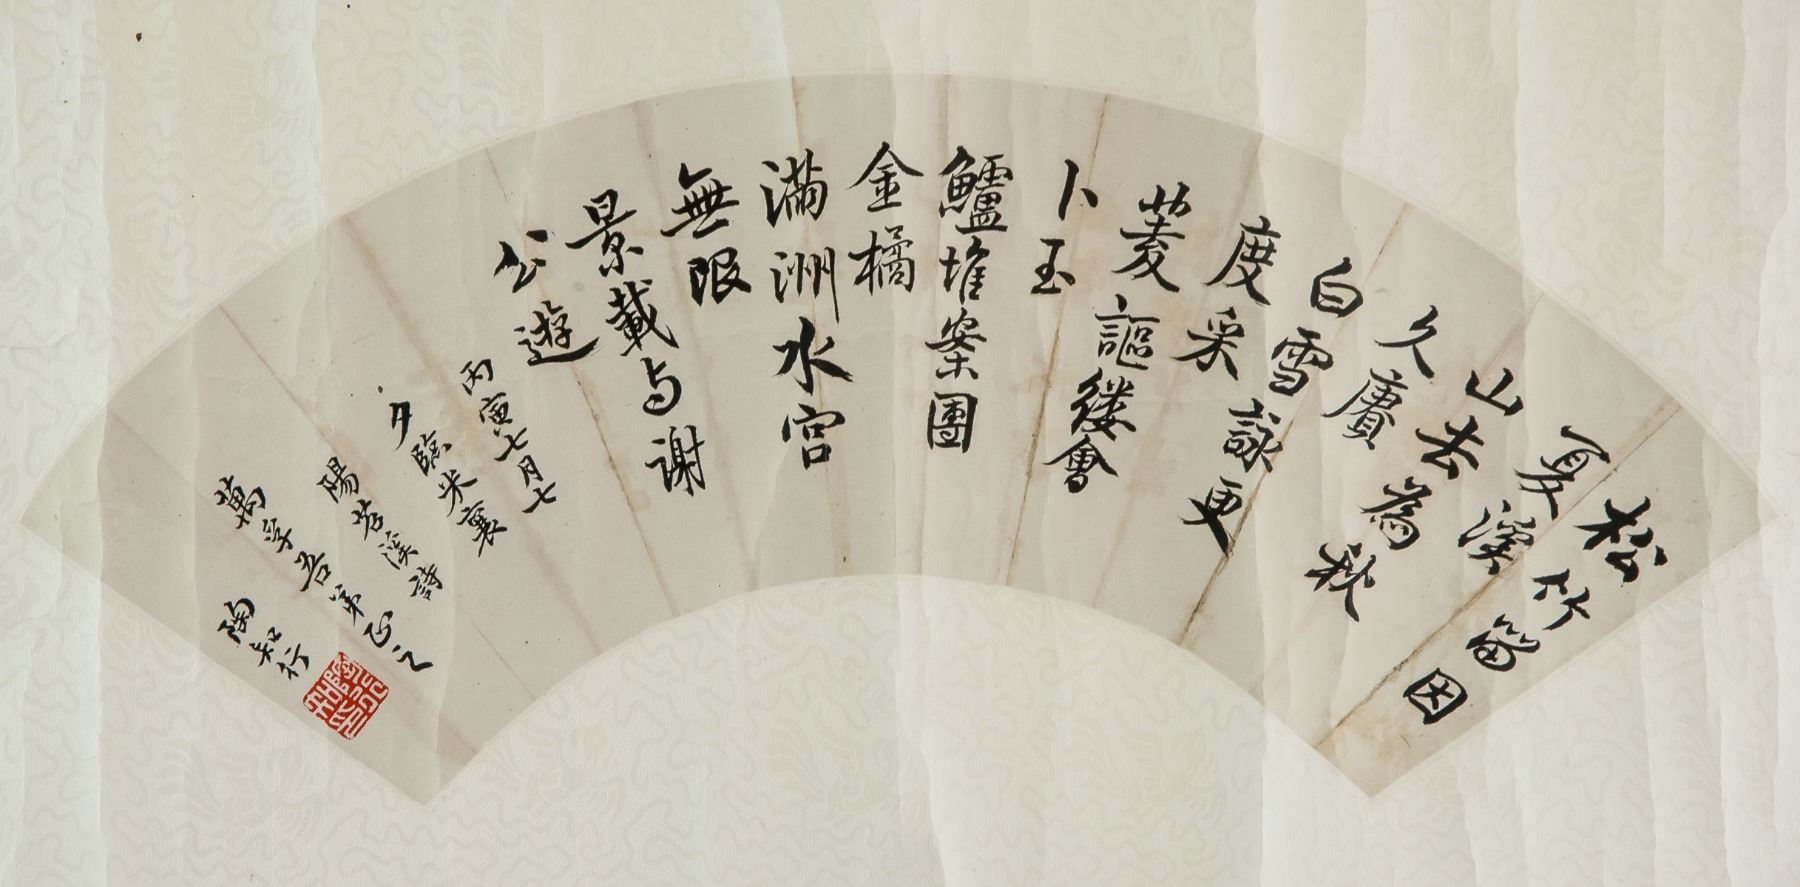 松竹留因
夏溪
山去為秋
久賡
白雪詠更
度采
菱謳縷會
卜玉
鱸堆案團
金橘
滿洲水宮
無限
景載与謝
公遊
丙寅七月七
夕臨米襄
陽苕溪詩
萬孚吾弟正之
陶知行
陶知行印